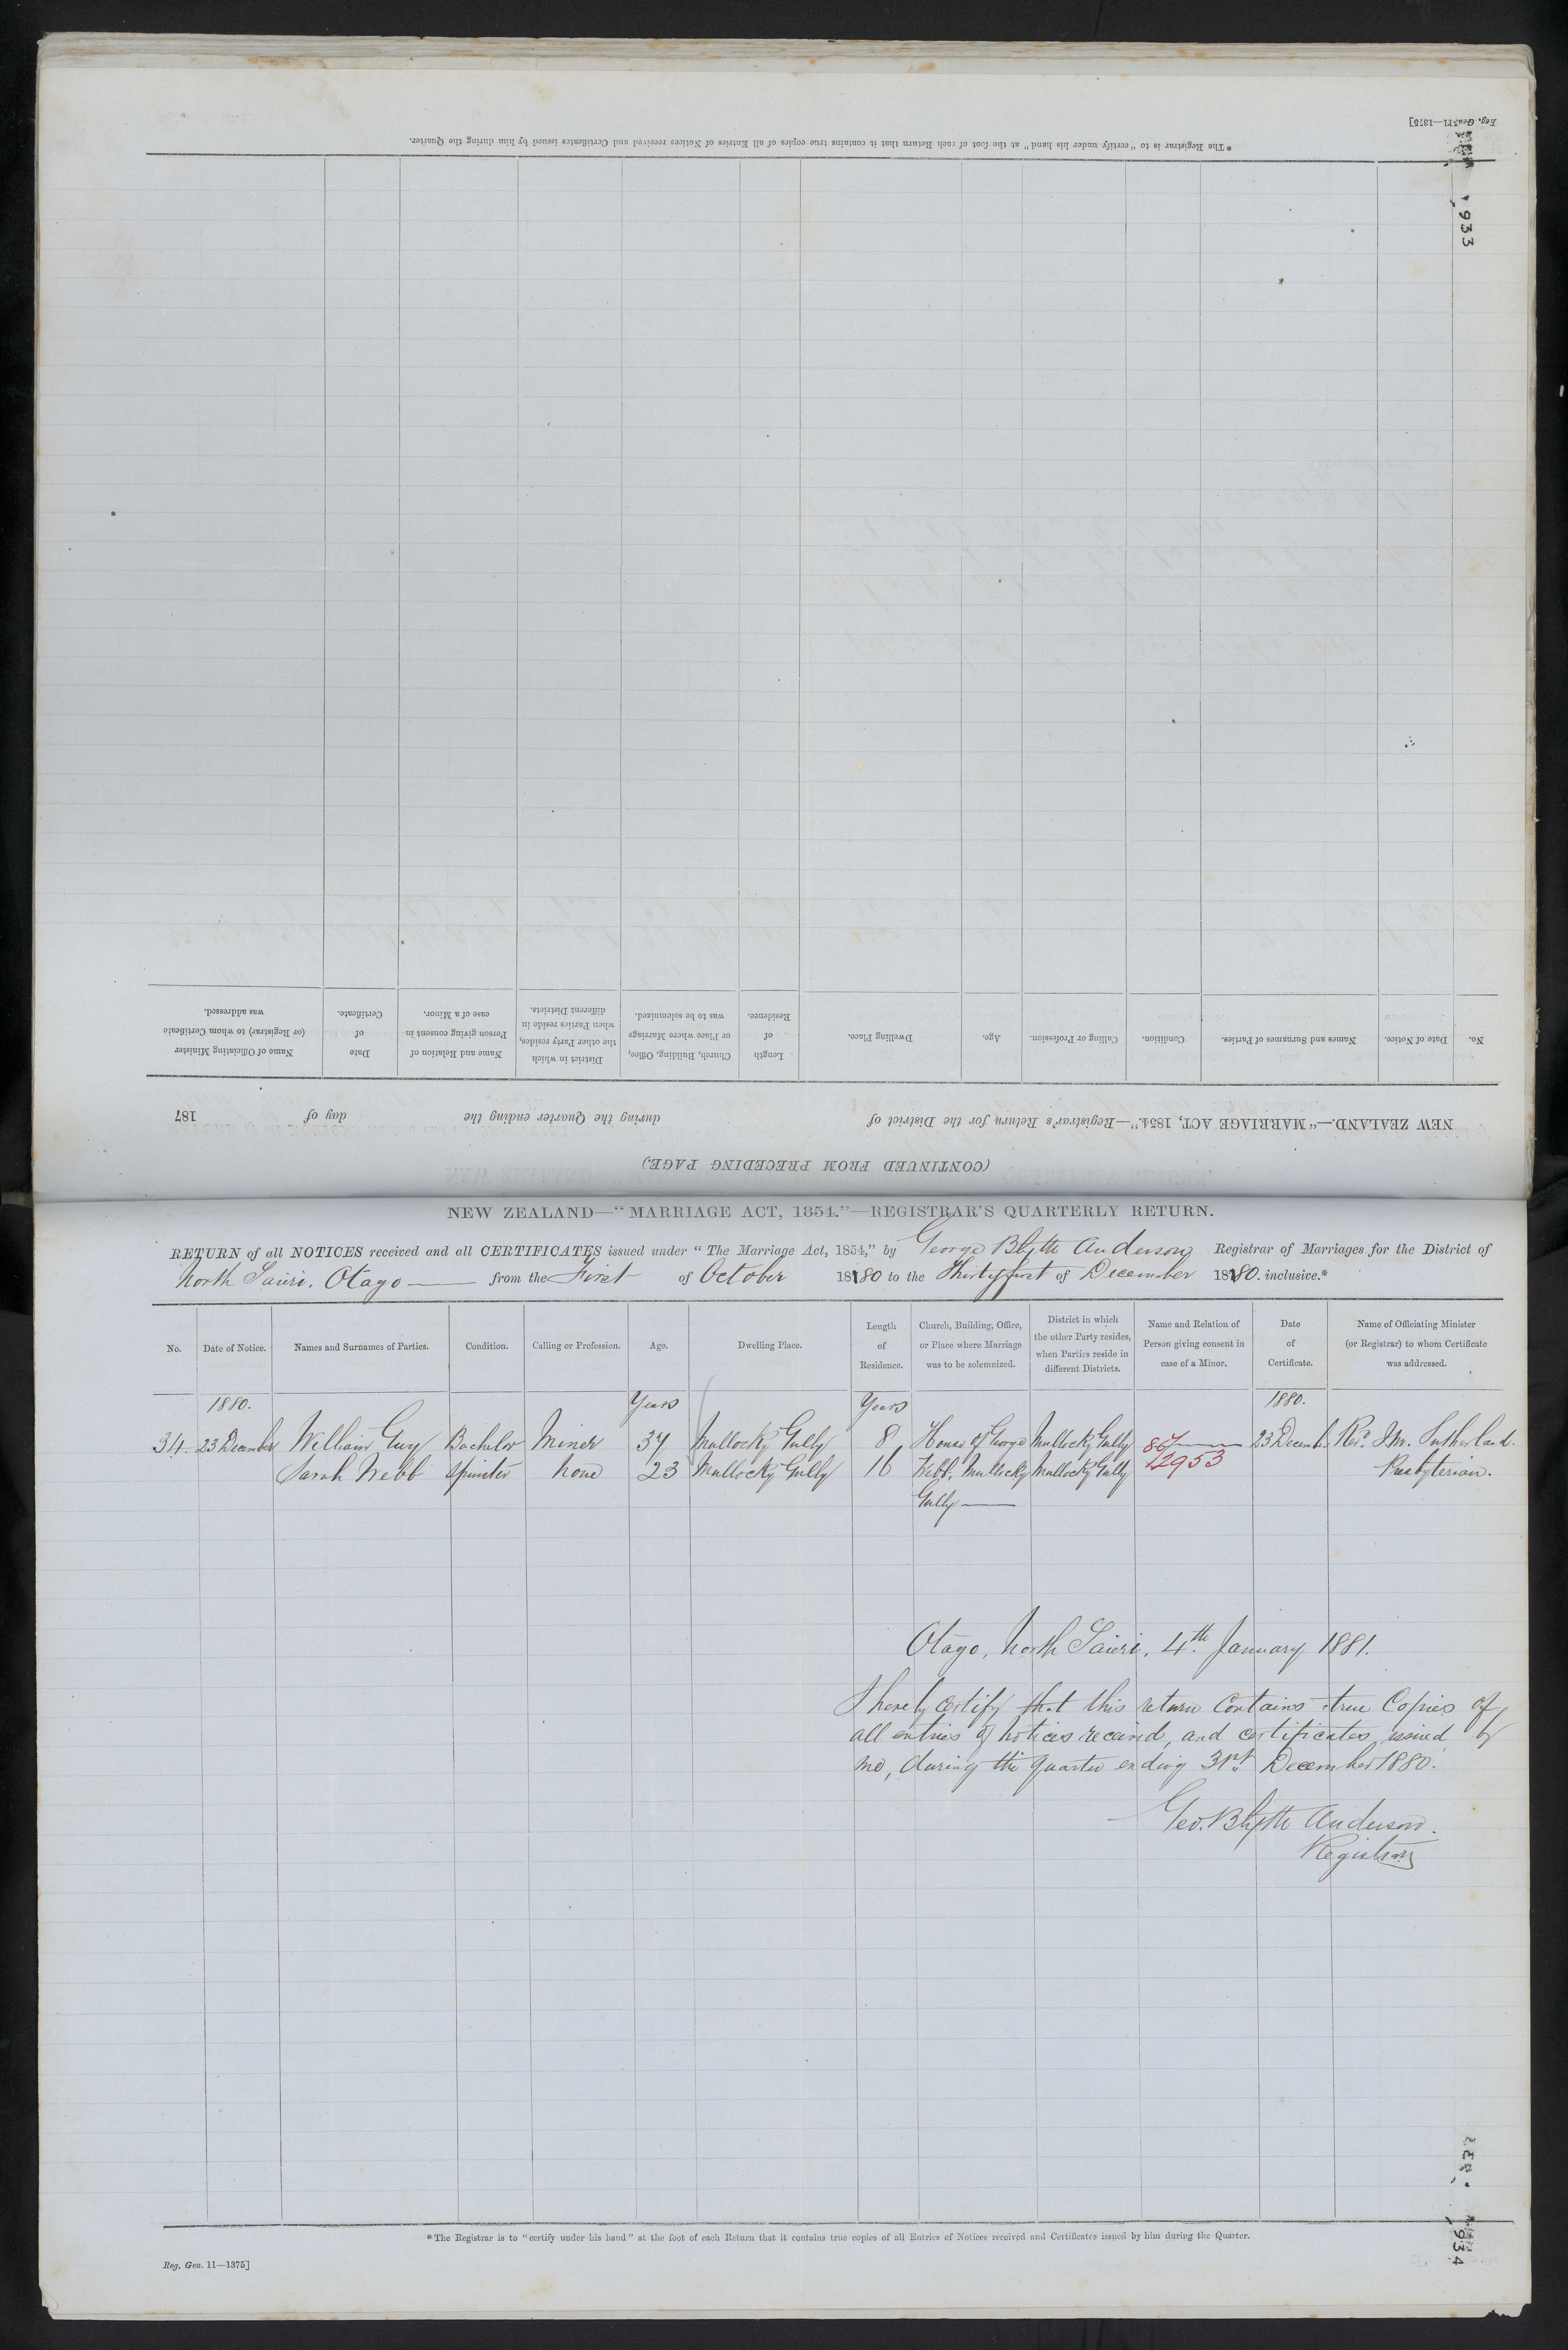 Reg. Gen. 11—1375]
* The Registrar is to "certify under his hand" at the foot of each Return that it contains true copies of all Entries of Notices received and Certificates issued by him during the Quarter.
933
(CONTINUED FROM PRECEDING PAGE.)
NEW ZEALAND.—"MARRIAGE ACT, 1854."—Registrar's Return for the District of during the Quarter ending the day of 187
No. Date of Notice. Names and Surnames of Parties. Condition. Calling or Profession. Age. Dwelling Place. Length of Residence. Church, Building, Office, or Place where Marriage was to be solemnized. District in which the other Party resides, when Parties reside in different Districts. Name and Relation of Person giving consent in case of a Minor. Date of Certificate. Name of Officiating Minister (or Registrar) to whom Certificate was addressed.
NEW ZEALAND—"MARRIAGE ACT, 1854."—REGISTRAR'S QUARTERLY RETURN.
RETURN of all NOTICES received and all CERTIFICATES issued under "The Marriage Act, 1854," by George Blyth Anderson Registrar of Marriages for the District of
North Taieri. Otago from the First of October 1880 to the Thirtyfirst of December 1880. inclusive.*
No. Date of Notice. Names and Surnames of Parties. Condition. Calling or Profession. Age. Dwelling Place. Length of Residence. Church, Building, Office, or Place where Marriage was to be solemnized. District in which the other Party resides, when Parties reside in different Districts. Name and Relation of Person giving consent in case of a Minor. Date of Certificate. Name of Officiating Minister (or Registrar) to whom Certificate was addressed.
1880. Years Years 1880.
34. 23 December William Guy Bachelor Miner 37 Mullocky Gully 8 House of George Mullocky Gully 23 Decemb Revd. J.M. Sutherland.
Sarah Webb Spinster None 23 Mullocky Gully 16 Webb, Mullocky Mullocky Gully 2953 Presbyterian.
Gully
Otago, North Taieri, 4th January 1881.
I hereby certify that this return contains true Copies of
all entries of notices received, and certificates issued by
me, during the quarter ending 31st December 1880.
Geo. Blyth Anderson.
Registrar
* The Registrar is to "certify under his hand" at the foot of each Return that it contains true copies of all Entries of Notices received and Certificates issued by him during the Quarter.
Reg. Gen. 11—1375]
934